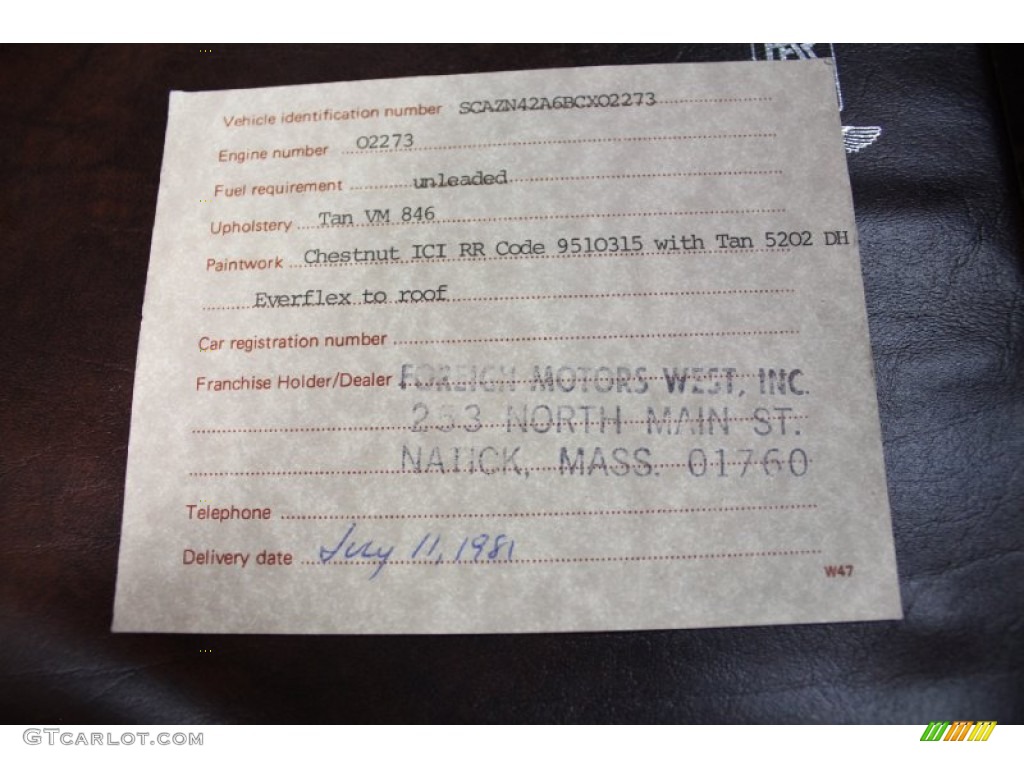 Vehicle identification number SCAZN42A6BCX02273
Engine number 02273
Fuel requirement unleaded
Upholstery Tan VM 846
Paintwork Chestnut ICI RR Code 9510315 with Tan 5202 DH
Everflex to roof
Car registration number
Franchise Holder/Dealer FOREIGN MOTORS WEST, INC.
253 NORTH MAIN ST.
NATICK, MASS. 01760
Telephone
Delivery date July 11, 1981
W47
GTCARLOT.COM